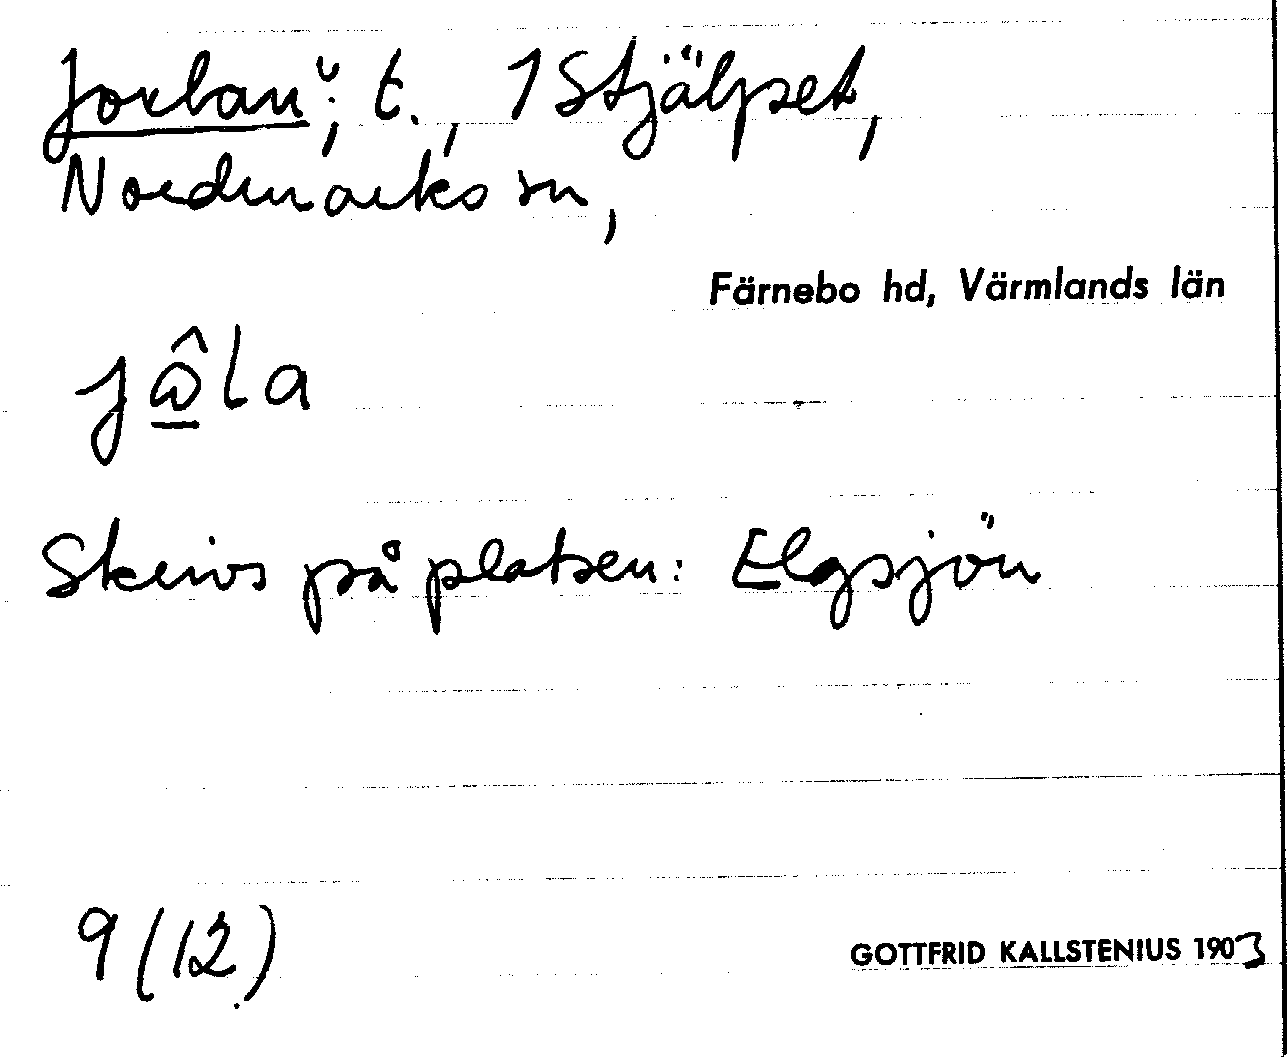 Jorlanᵕ; t., 1 Stjälpet,
Nordmarks sn,
Färnebo hd, Värmlands län
jω̂la
Skrivs på platsen: Elgsjön
9 (12)
GOTTFRID KALLSTENIUS 1903